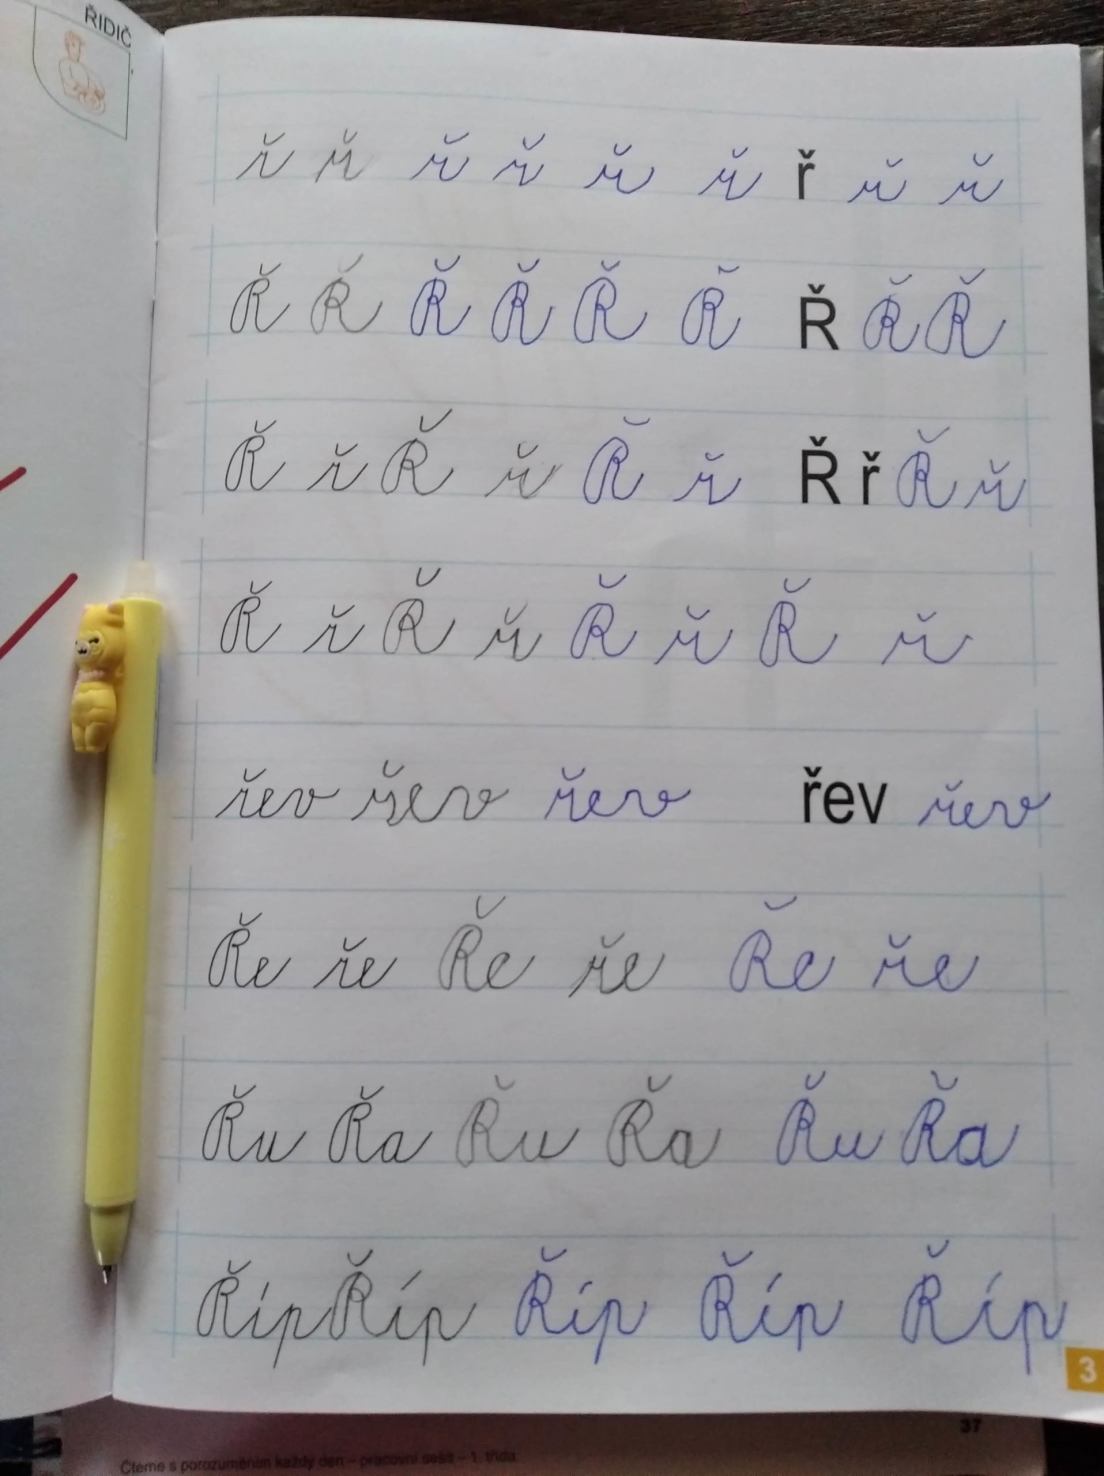 ŘIDIČ
ř ř ř ř ř ř ř ř ř
Ř Ř Ř Ř Ř Ř Ř Ř Ř
Ř ř Ř ř Ř ř Ř ř Ř ř
Ř ř Ř ř Ř ř Ř ř
řev řev řev řev řev
Ře ře Ře ře Ře ře
Řu Řa Řu Řa Řu Řa
Říp Říp Říp Říp Říp
3
37
Čteme s porozuměním každý den – pracovní sešit – 1. třída